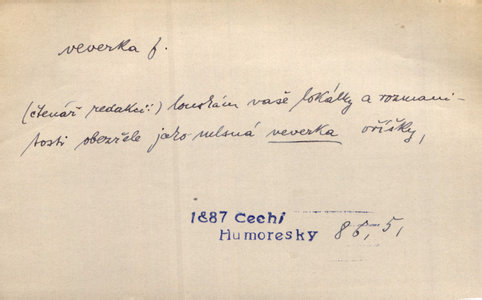 veverka f.
(čtenář redakci:) louskám vaše lokálky a rozmani-
tosti obezřele jako mlsná veverka oříšky,
1887 Cechi
Humoresky 86, 5,